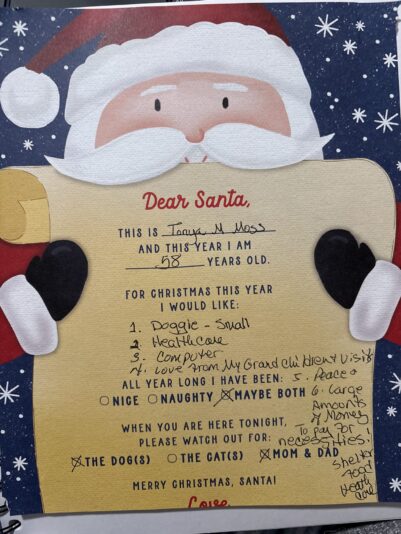 Dear Santa,
THIS IS Tonya M Moss
AND THIS YEAR I AM
58 YEARS OLD.
FOR CHRISTMAS THIS YEAR
I WOULD LIKE:
1. Doggie - Small
2. Healthcare
3. Computer
4. Love from My Grandchildren & Visits
ALL YEAR LONG I HAVE BEEN: 5. Peace
NICE NAUGHTY MAYBE BOTH 6. Large
Amounts
of Money
WHEN YOU ARE HERE TONIGHT, To pay for
PLEASE WATCH OUT FOR: necessities!
THE DOG(S) THE CAT(S) MOM & DAD Shelter
Food
Health
Care
MERRY CHRISTMAS, SANTA!
Love,